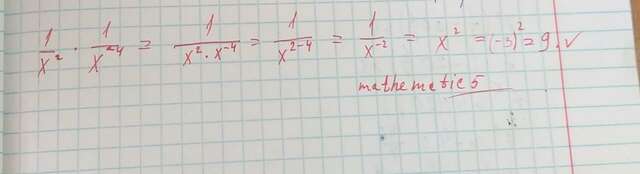 1/x² · 1/x⁻⁴ = 1/(x² · x⁻⁴) = 1/x²⁻⁴ = 1/x⁻² = x² = (-3)² = 9. ✓
mathematics